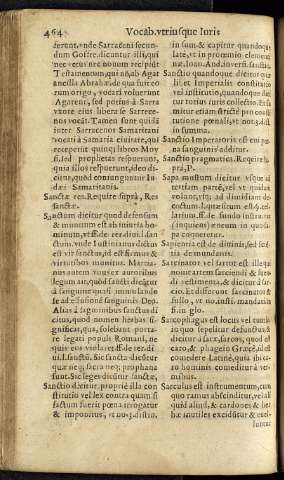 464 Vocab. vtriusque Iuris
ferunt, vnde Sarraceni secun-
dum Goffre. dicuntur illi, qui
nec vetus nec nouum recipiūt
Testamentum, qui nō ab Agar
ancilla Abrahæ, de qua fuere
rum origo, vocari voluerunt
Agareni, sed potius à Sarra
vxore eius libera se Sarrace-
nos vocāt. Tamen sunt quidā
inter Sarracenos Samaritani
vocati à Samaria ciuitate, qui
receperūt quinq; libros Moy
si, sed prophetas respuerunt,
quia illos respuerunt, ideo di-
citur, quòd coniunguntur Iu-
dæi Samaritanis.
Sanctæ res. Require suprà, Res
sanctæ.
Sanctum dicitur quod defensum
& munitum est ab iniuria ho-
minum, vt ff. de rer. diui. l. san-
ctum. vnde Iustinianus dictus
est vir sanctus, id est firmus &
virtutibus munitus. Martia-
nus autem vnus ex autoribus
legum ait, quòd sancti dicūtur
à sanguine quasi immolando
se ad effusionē sanguinis Deo.
Alias à sagminibus sanctū di-
citur, quod nomen herbas si-
gnificat, quas solebant porta-
re legati populi Romani, ne
quis eos violaret ff. de rer. di-
ui. l. sanctū. Sic sancta dicūtur
quæ neq; sacra neq; prophana
sunt. Sic leges dicūtur sanctæ.
Sanctio dicitur propriè illa con
stitutio vel lex contra quam si
factum fuerit pœna irrogatur
& imponitur, vt no. j. distin.
in sum. & capitur quandoque
late, vt in proœmio clementi
næ. Ioan. And. in versi. sanctio.
Sanctio quandoque dicitur qui-
libet Imperialis constitutio
vel in quisitio, quandoque su-
itur totius iuris collectio. Et su
mitur etiam strictè pro consti
tutione pœnali, vt nota. j. dist.
in summa.
Sanctio Imperatoris est cui pœ-
na sanguinis additur.
Sanctio pragmatica. Require su-
prà, P.
Sapa mustum dicitur vsque ad
tertiam partē, vel vt quidam
volunt, vsq; ad dimidiam de-
coctum. l. quæsitum est. §. cel-
larium. ff. de fundo instructo
(inquiens) æneum in quo sa-
pa coqueretur.
Sapientia est de diuinis, sed scien-
tia de mundanis.
Sarcinator vel sartor est ille qui
nouit artem sarciendi & scien-
di vestimenta, & dicitur à sar-
cio. Et differunt sarcinator &
fullo, vt no. insti. mandati. §. fi.
in glo.
Sarcophagus est locus vel tumba
in quo sepelitur defunctus, &
dicitur à sarx, sarcos, quod est
caro, & phageîn Græcè, id est
comedere Latinè, quia ibi ca-
ro hominis comeditur à ver-
mibus.
Sarculus est instrumentum, cum
quo ramus abscinditur, vel ali-
quid aliud, & cardones & her-
bæ inutiles exciduntur & euel-
luntur